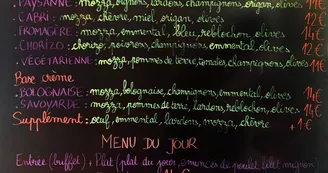 PAYSANNE : mozza, oignons, lardons, champignons, origan, olives 14€
CABRI : mozza, chèvre, miel, origan, olives 12€
FROMAGÈRE : mozza, emmental, bleu, reblochon, olives 14€
CHORIZO : chorizo, poivrons, champignons, emmental, olives 12€
VÉGÉTARIENNE : mozza, pommes de terre, tomates, champignons, olives 11€
Base crème
BOLOGNAISE : mozza, bolognaise, champignons, emmental, olives 14€
SAVOYARDE : mozza, pommes de terre, lardons, reblochon, olives 14€
Supplément : œuf, emmental, lardons, mozza, chèvre +1€
MENU DU JOUR
Entrée (buffet) + Plat (plat du jour, émincés de poulet, filet mignon